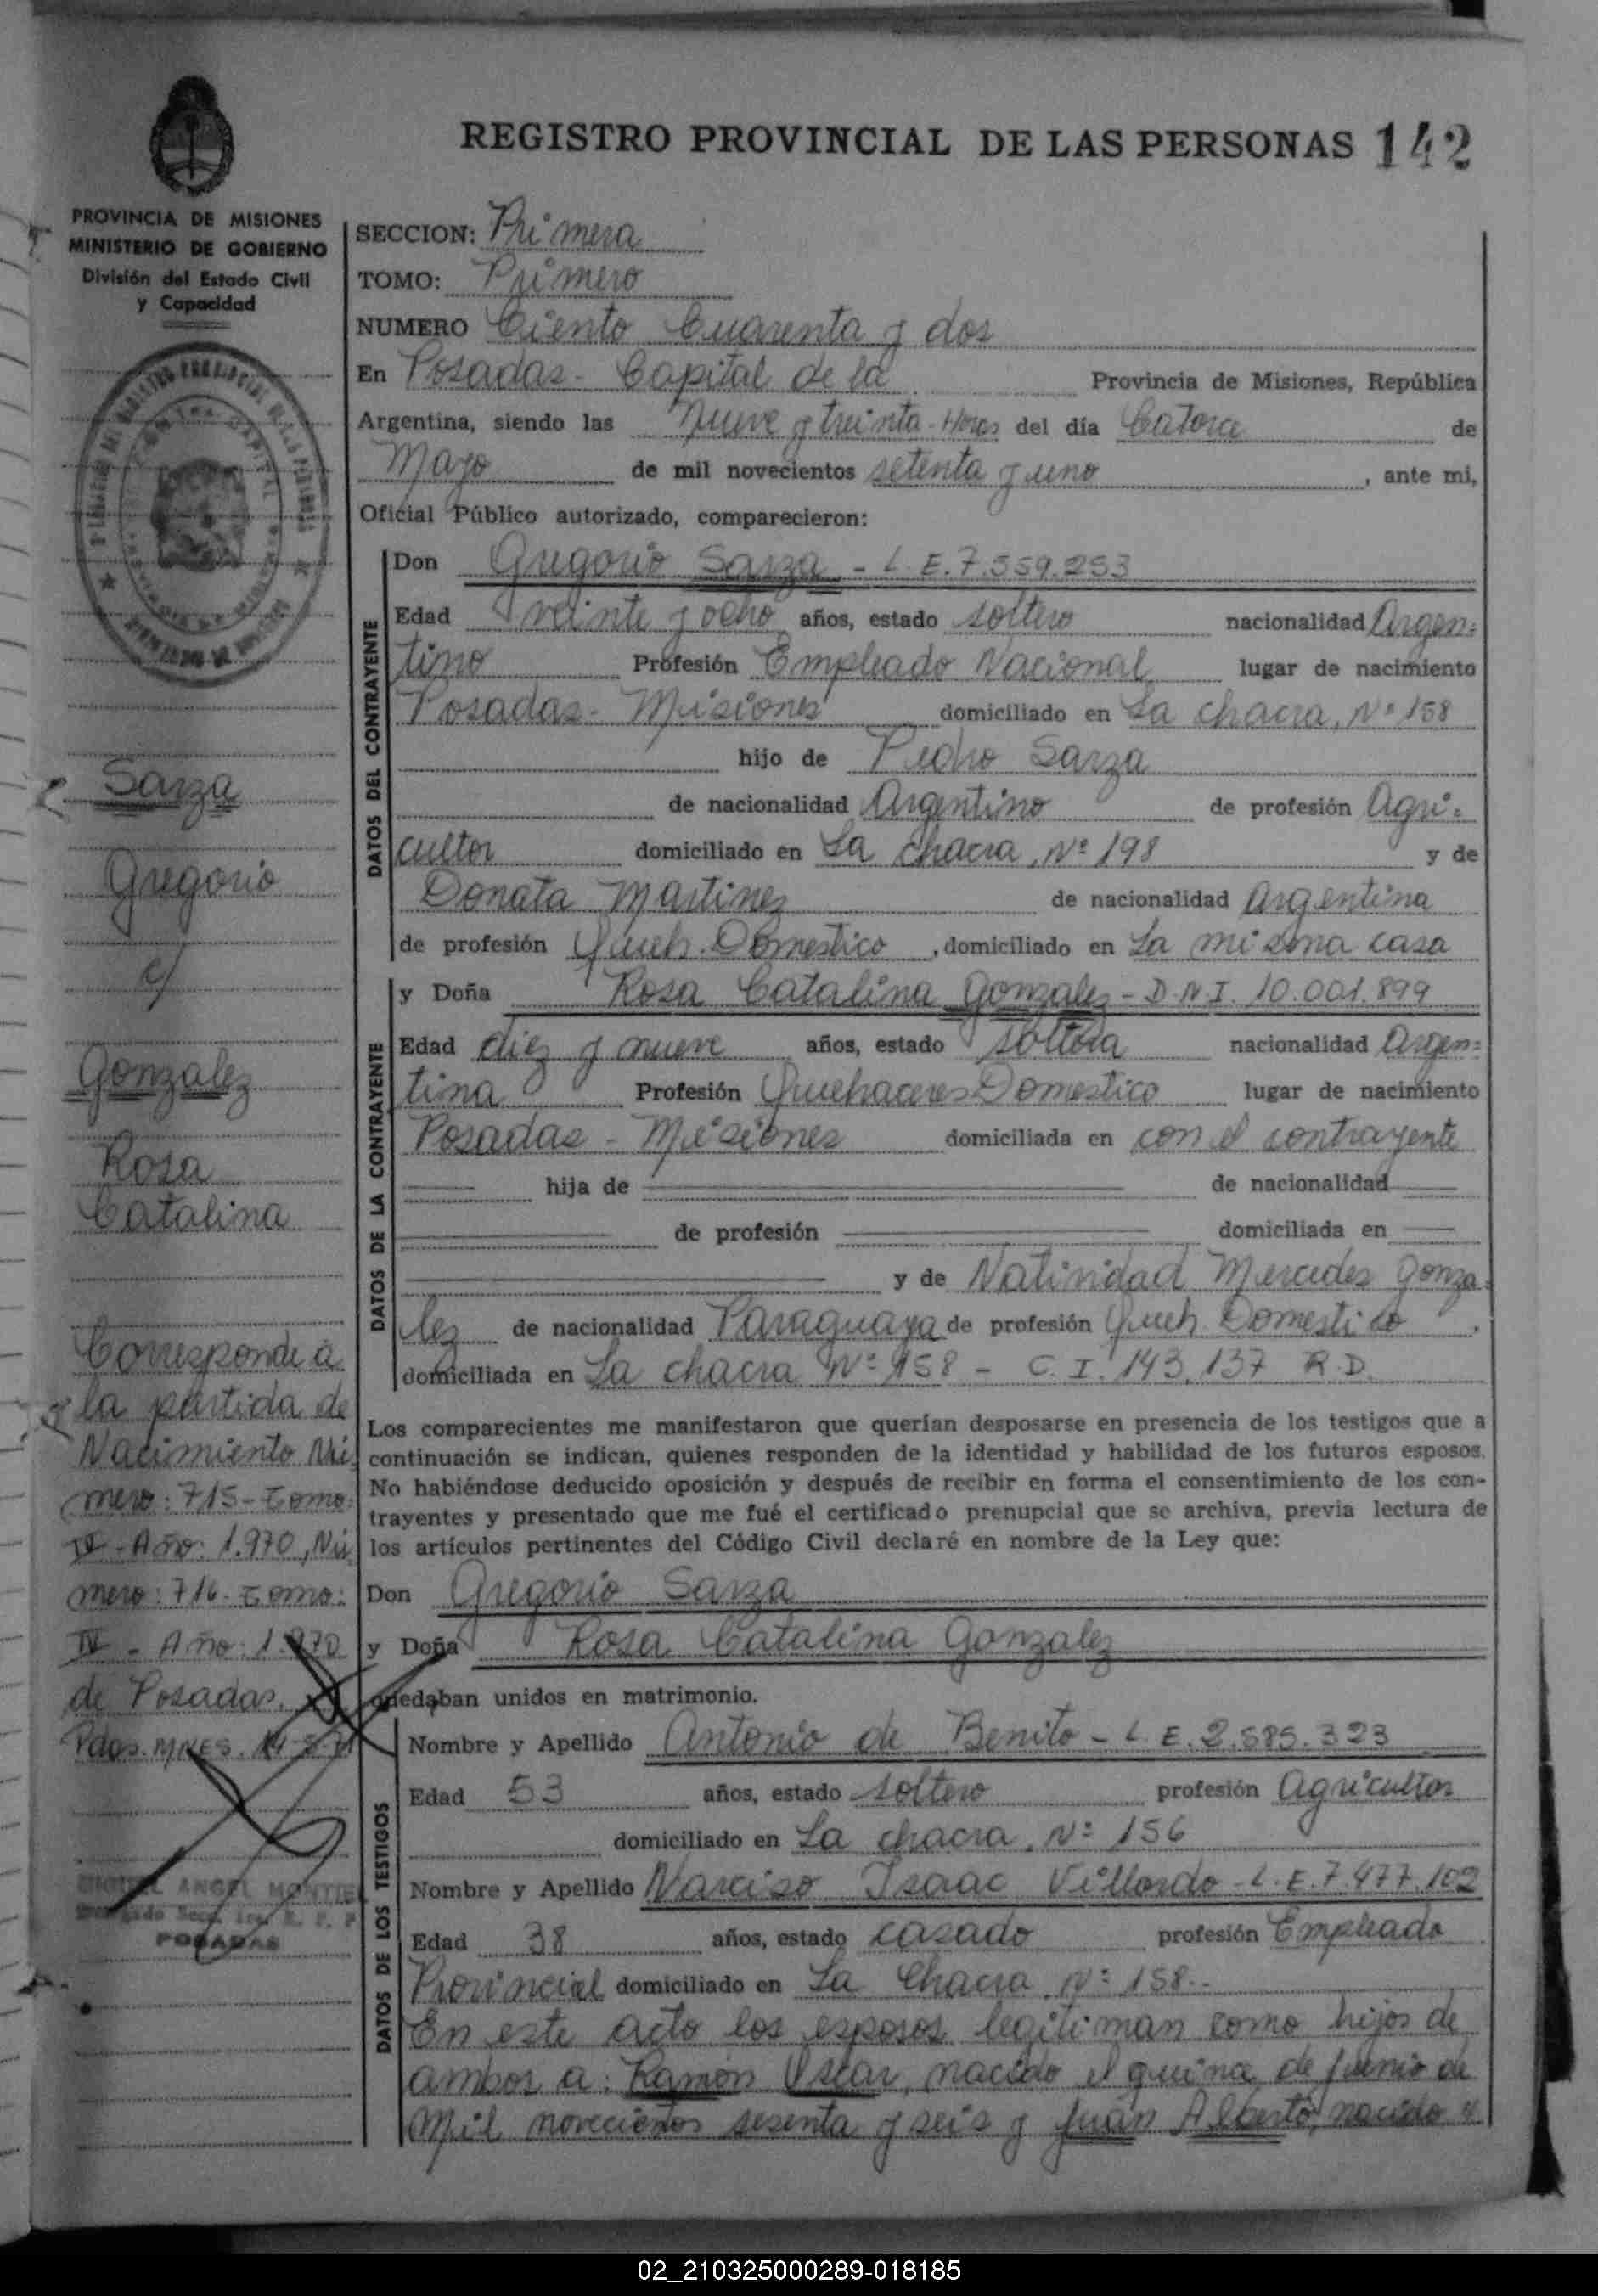 REGISTRO PROVINCIAL DE LAS PERSONAS 142
PROVINCIA DE MISIONES
MINISTERIO DE GOBIERNO
División del Estado Civil
y Capacidad
Sarza
Gregorio
c/
Gonzalez
Rosa
Catalina
Corresponde a
la partida de
Nacimiento Nú
mero: 715-Tomo:
IV-Año: 1.970, Nú
mero: 716-Tomo:
IV - Año: 1.970
de Posadas.
Pdas. MNES. 14-5-71
MIGUEL ANGEL MONTIE
POSADAS
SECCION: Primera
TOMO: Primero
NUMERO Ciento Cuarenta y dos
En Posadas - Capital de la Provincia de Misiones, República
Argentina, siendo las Nueve y treinta-Horas del día Catorce de
Mayo de mil novecientos setenta y uno, ante mi,
Oficial Público autorizado, comparecieron:
DATOS DEL CONTRAYENTE
Don Gregorio Sarza - L.E.7.559.253
Edad veinte y ocho años, estado soltero nacionalidad Argen=
tino Profesión Empleado Nacional lugar de nacimiento
Posadas - Misiones domiciliado en La chacra, Nº 158
hijo de Pedro Sarza
de nacionalidad Argentino de profesión Agri=
cultor domiciliado en La chacra, Nº 198 y de
Donata Martinez de nacionalidad Argentina
de profesión Queh. Domestico, domiciliado en La misma casa
DATOS DE LA CONTRAYENTE
y Doña Rosa Catalina Gonzalez - D.N.I. 10.001.899
Edad diez y nueve años, estado soltera nacionalidad Argen=
tina Profesión Quehaceres Domestico lugar de nacimiento
Posadas - Misiones domiciliada en con el contrayente
hija de de nacionalidad
de profesión domiciliada en
y de Natividad Mercedes Gonza=
lez de nacionalidad Paraguaya de profesión Queh. Domestico.
domiciliada en La chacra Nº 158 - C.I. 143.137 R.D.
Los comparecientes me manifestaron que querían desposarse en presencia de los testigos que a
continuación se indican, quienes responden de la identidad y habilidad de los futuros esposos.
No habiéndose deducido oposición y después de recibir en forma el consentimiento de los con-
trayentes y presentado que me fué el certificado prenupcial que se archiva, previa lectura de
los artículos pertinentes del Código Civil declaré en nombre de la Ley que:
Don Gregorio Sarza
y Doña Rosa Catalina Gonzalez
quedaban unidos en matrimonio.
DATOS DE LOS TESTIGOS
Nombre y Apellido Antonio de Benito - L.E.2.585.323
Edad 53 años, estado soltero profesión Agricultor
domiciliado en La chacra, Nº 156
Nombre y Apellido Narciso Isaac Villordo - L.E.7.477.102
Edad 38 años, estado casado profesión Empleado
Provincial domiciliado en La Chacra, Nº 158.-
En este acto los esposos legitiman como hijos de
ambos a: Ramón Oscar, nacido el quince de Junio de
mil novecientos sesenta y seis y Juan Alberto, nacido el
02_210325000289-018185